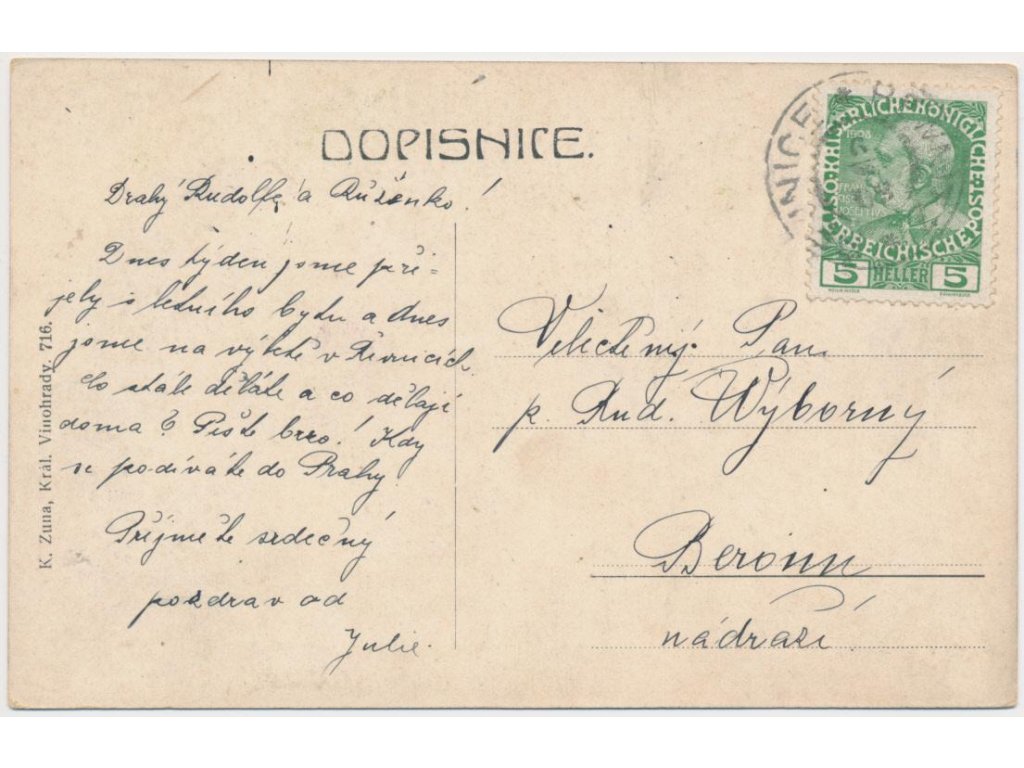 DOPISNICE.
Drahý Rudolfe a Růženko!
Dnes týden jsme při-
jely s letního bytu a dnes
jsme na výletě v Řevnicích.
Co stále děláte a co dělají
doma? Pište brzo! Kdy
se podíváte do Prahy?
Přijměte srdečný
pozdrav od
Julie.
K. Zuna, Král. Vinohrady. 716.
KAISERLICHE KÖNIGLICHE ÖSTERREICHISCHE POST
1908
FRAN
CISC
IOSEPH I
5 HELLER 5
Velectěný Pan
p. Rud. Výborný
Beroun
nádraží